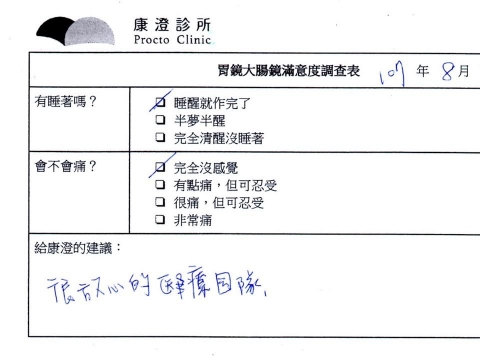 康澄診所
Procto Clinic
胃鏡大腸鏡滿意度調查表 107 年 8 月
有睡著嗎？
☑ 睡醒就作完了
❑ 半夢半醒
❑ 完全清醒沒睡著
會不會痛？
☑ 完全沒感覺
❑ 有點痛，但可忍受
❑ 很痛，但可忍受
❑ 非常痛
給康澄的建議：
很放心的醫療团隊，